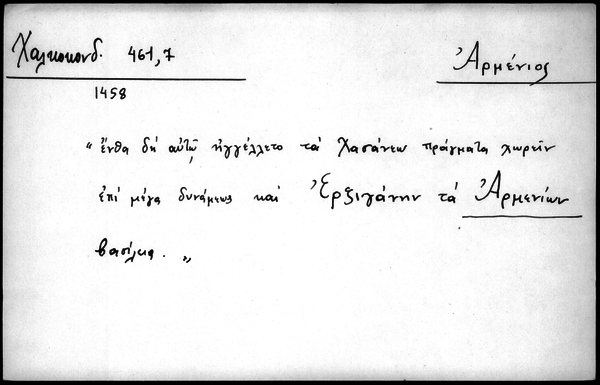 Χαλκοκονδ. 461,7
Ἀρμένιος
1458
"ἔνθα δή αὐτῷ ἠγγέλλετο τά Χασάνεω πράγματα χωρεῖν
ἐπί μέγα δυνάμεως καί Ἐρζιγάνην τά Ἀρμενίων
βασίλεια."